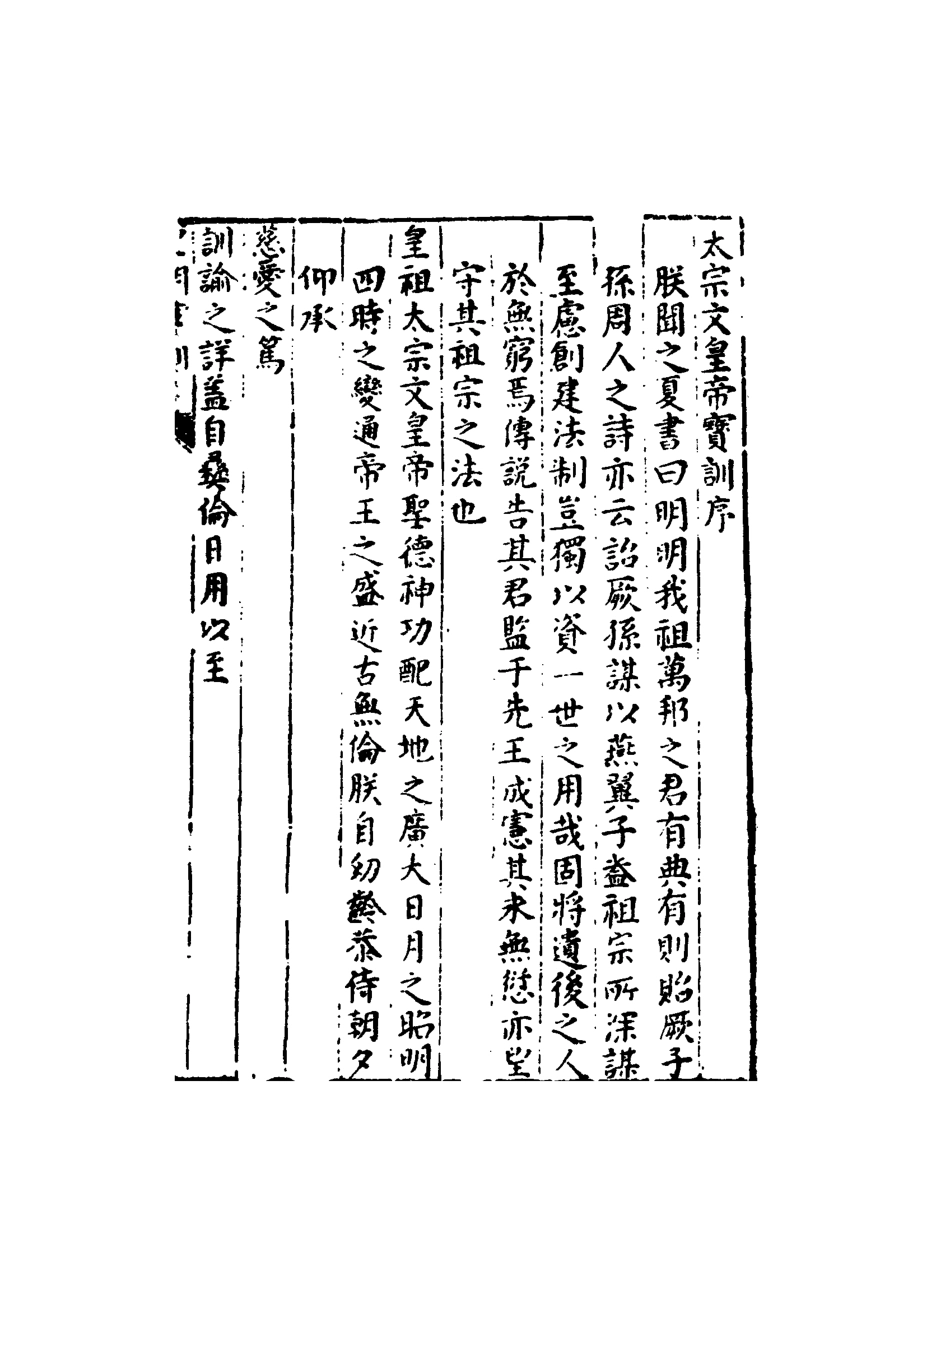 太宗文皇帝寶訓序
朕聞之夏書曰明明我祖萬邦之君有典有則貽厥子
孫周人之詩亦云詒厥孫謀以燕翼子葢祖宗所深謀
至慮創建法制豈獨以資一世之用哉固將遺後之人
於無窮焉傳説告其君監于先王成憲其永無愆亦望
守其祖宗之法也
皇祖太宗文皇帝聖德神功配天地之廣大日月之昭明
四時之變通帝王之盛近古無倫朕自幼齡恭侍朝夕
仰承
慈愛之篤
訓諭之詳葢自彝倫日用以至